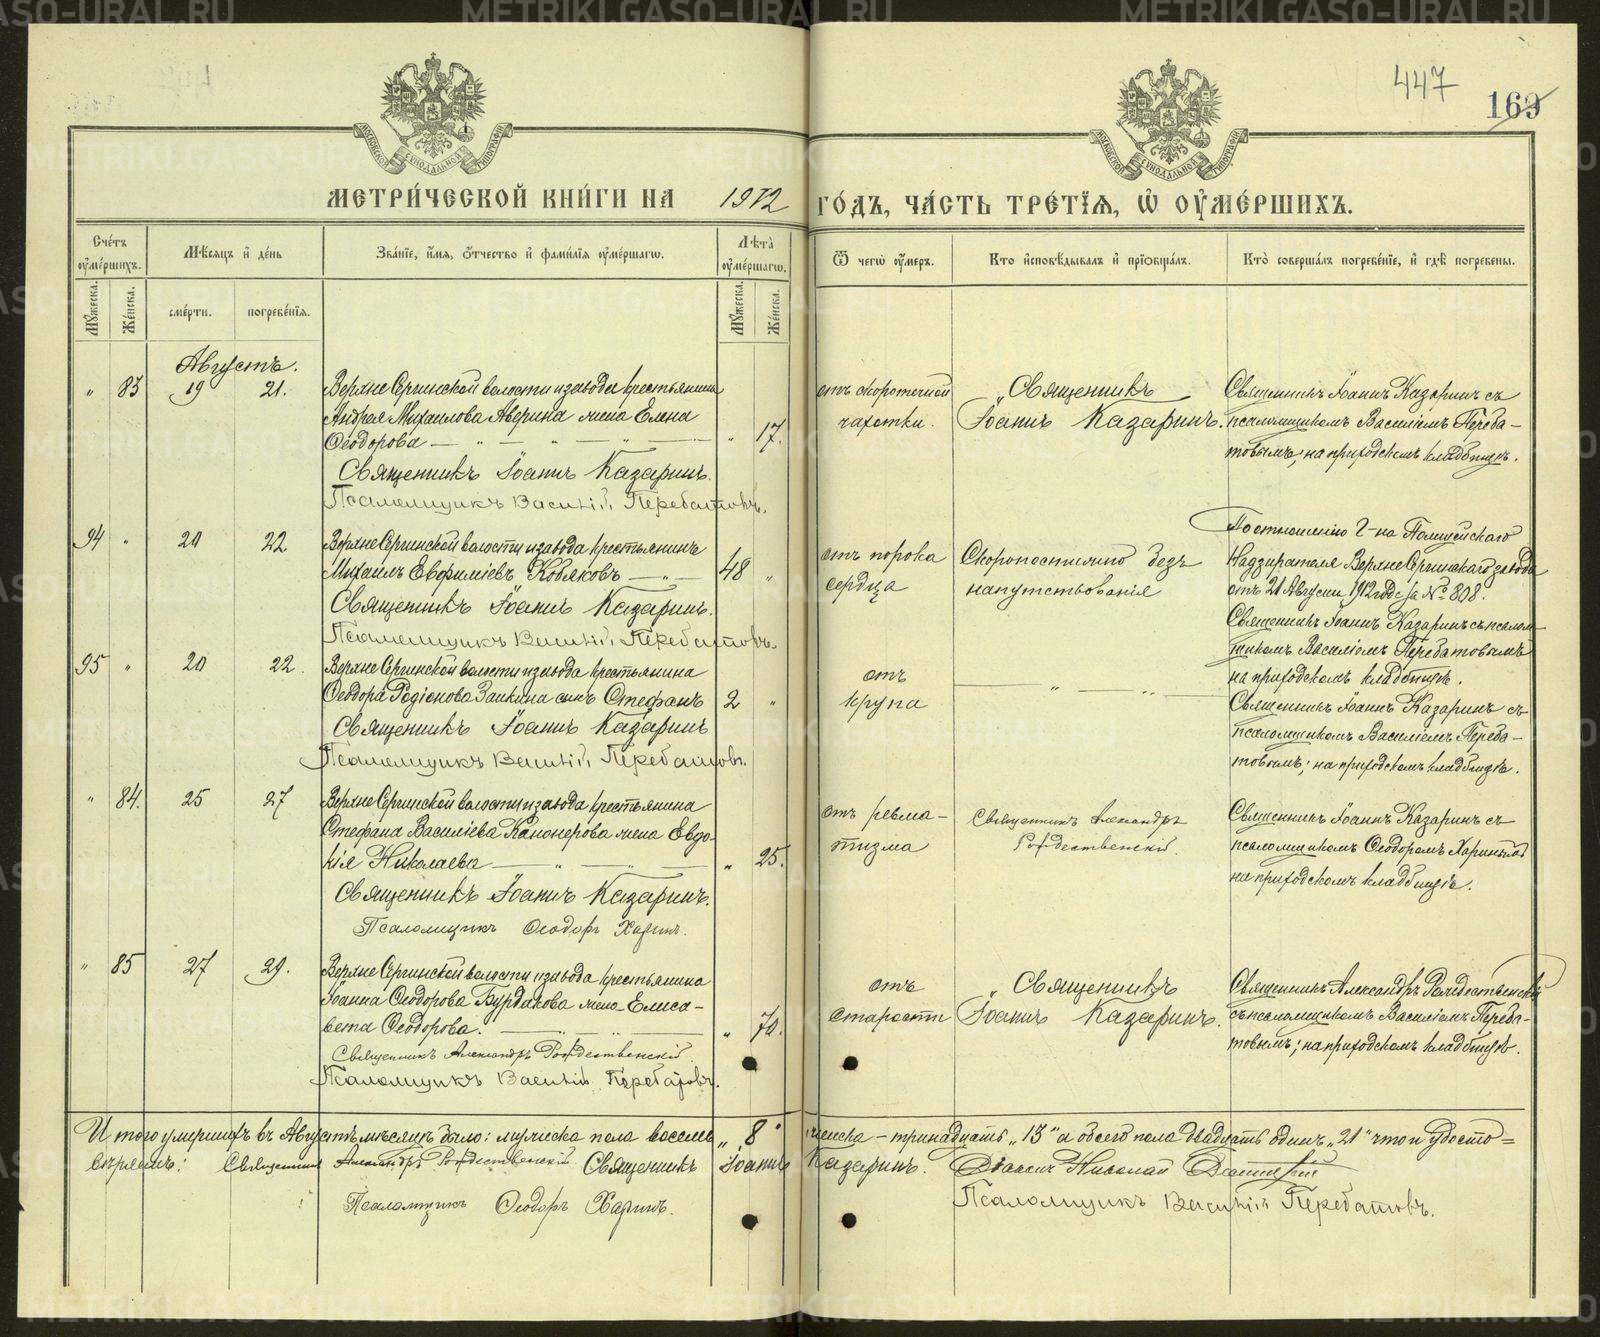 447
169
МОСКОВСКОЙ СѴНОДАЛЬНОЙ ТИПОГРАФІИ
МОСКОВСКОЙ СѴНОДАЛЬНОЙ ТИПОГРАФІИ
МЕТРИ́ЧЕСКОЙ КНИ́ГИ НА 1912 ГО́ДЪ, ЧА́СТЬ ТРЕ́ТІѦ, Ѡ҆ ОУ҆МЕ́РШИХЪ.
Сче́тъ оу҆ме́ршихъ.
Мѣ́сяцъ и҆ де́нь
Зва́ніе, и҆́мя, ѻ҆́тчество и҆ фами́лія оу҆ме́ршагѡ.
Лѣ́та оу҆ме́ршагѡ.
Ѿ чегѡ̀ оу҆́меръ.
Кто̀ и҆сповѣ́дывалъ и҆ пріѡбща́лъ.
Кто̀ соверша́лъ погребе́ніе, и҆ гдѣ̀ погребены.
Мꙋ́жеска.
Же́нска.
сме́рти.
погребе́нія.
Мꙋ́жеска.
Же́нска.
Августъ.
" 83 19 21.
Верхне Сергинской волости и завода крестьянина
Андрея Михаилова Аверина жена Елена
Ѳеодорова — " — " — " 17.
Священникъ Іоаннъ Казаринъ.
Псаломщикъ Василій Перебатовъ.
отъ скоротечной
чахотки.
Священникъ
Іоаннъ Казаринъ.
Священникъ Іоаннъ Казаринъ съ
псаломщикомъ Василіемъ Переба-
товымъ, на приходскомъ кладбищѣ.
94 " 20 22
Верхне Сергинской волости и завода крестьянинъ
Михаилъ Евфиміевъ Кобяковъ — " — 48 "
Священникъ Іоаннъ Казаринъ.
Псаломщикъ Василій Перебатовъ.
отъ порока
сердца
Скоропостижно безъ
напутствованія
По отношенію Г-на Полицейскаго
Надзирателя Верхне Сергинскаго завода
отъ 21 Августа 1912 года за № 808.
Священникъ Іоаннъ Казаринъ съ псалом-
щикомъ Василіемъ Перебатовымъ
на приходскомъ кладбищѣ.
95 " 20 22.
Верхне Сергинской волости и завода крестьянина
Ѳеодора Родіонова Заикина сынъ Стефанъ 2 "
Священникъ Іоаннъ Казаринъ
Псаломщикъ Василій Перебатовъ.
отъ
крупа
— " — " —
Священникъ Іоаннъ Казаринъ съ
псаломщикомъ Василіемъ Переба-
товымъ; на приходскомъ кладбищѣ.
" 84. 25 27
Верхне Сергинской волости и завода крестьянина
Стефана Василіева Канонерова жена Евдо-
кія Николаева — " — " — " 25.
Священникъ Іоаннъ Казаринъ.
Псаломщикъ Ѳеодоръ Харинъ.
отъ ревма-
тизма
Священникъ Александръ
Рождественскій.
Священникъ Іоаннъ Казаринъ съ
псаломщикомъ Ѳеодоромъ Харинымъ
на приходскомъ кладбищѣ.
" 85 27 29.
Верхне Сергинской волости и завода крестьянина
Іоанна Ѳеодорова Бурдакова жена Елиса-
вета Ѳеодорова. — " — " — " 70.
Священникъ Александръ Рождественскій.
Псаломщикъ Василій Перебатовъ.
отъ
старости
Священникъ
Іоаннъ Казаринъ.
Священникъ Александръ Рождественскій
съ псаломщикомъ Василіемъ Переба-
товымъ; на приходскомъ кладбищѣ.
Итого умершихъ въ Августѣ мѣсяцѣ было: мужеска пола восемь „8" женска — тринадцать „13" а обоего пола двадцать одинъ „21" что и удосто=
вѣряемъ: Священникъ Александръ Рождественскій Священникъ Іоаннъ Казаринъ. Діаконъ Николай
Псаломщикъ Ѳеодоръ Харинъ. Псаломщикъ Василій Перебатовъ.
METRIKI.GASO-URAL.RU